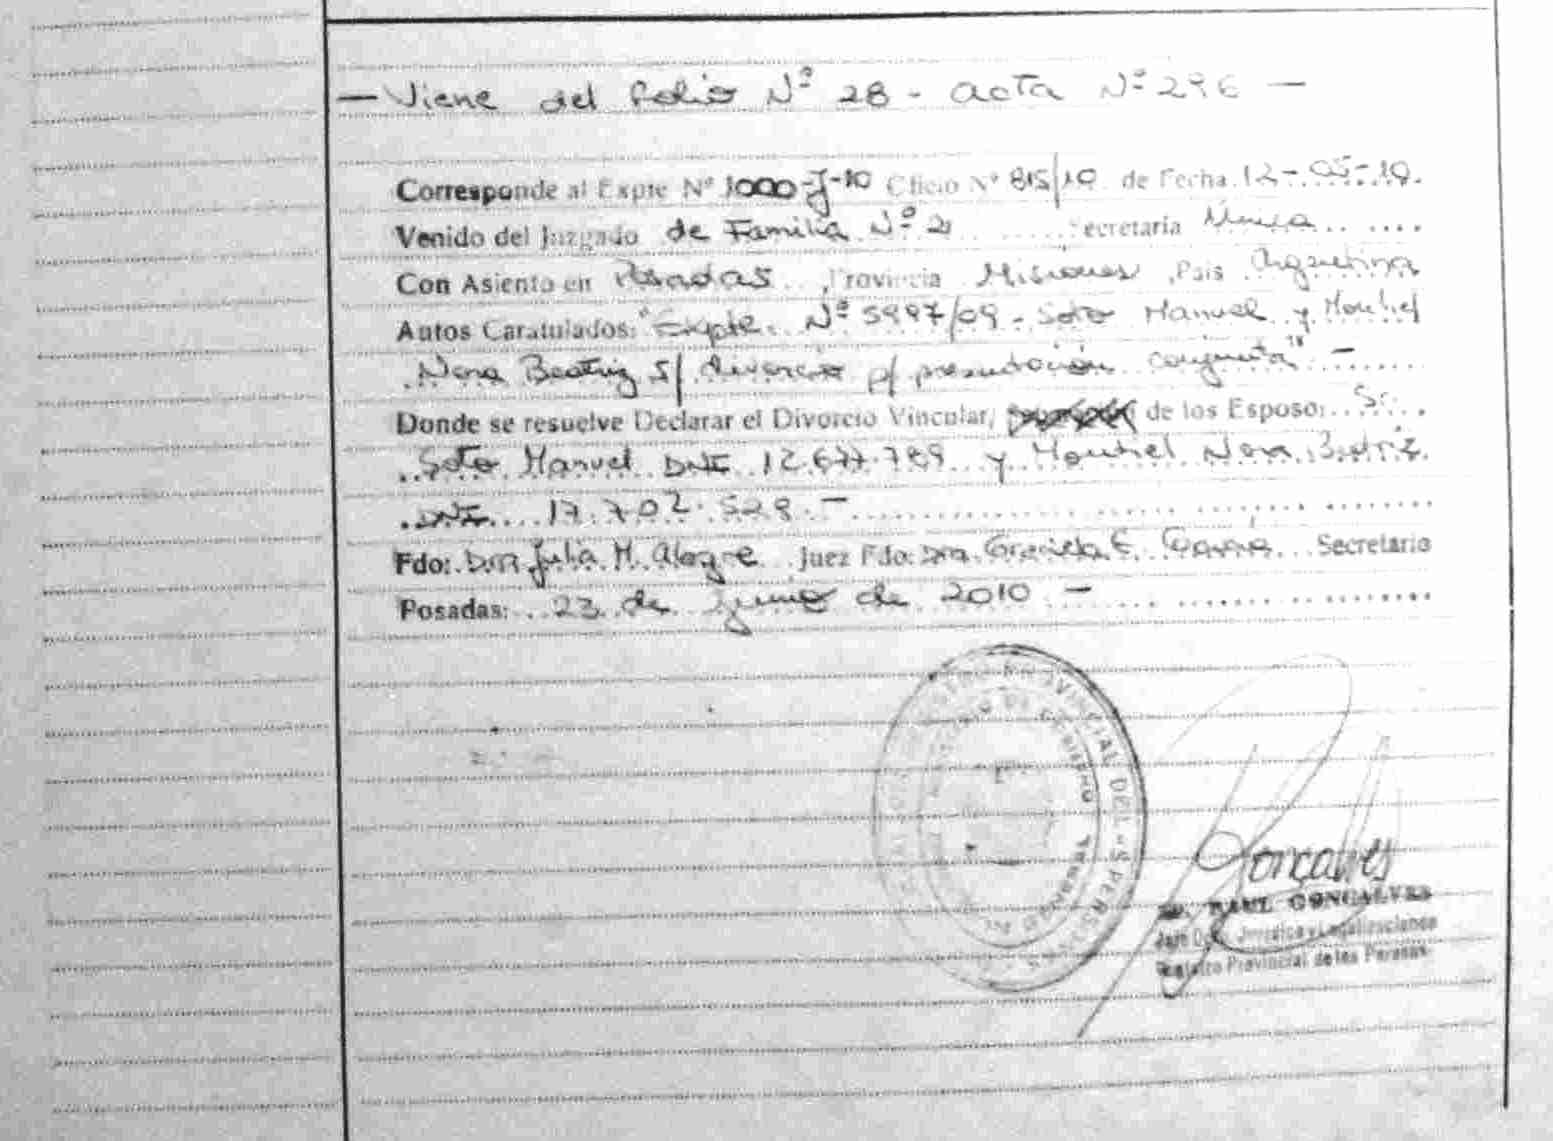 — Viene del folio Nº 28 - acta Nº 296 —
Corresponde al Expte Nº 1000-J-10 Oficio Nº 815/10 de Fecha 12-05-10.
Venido del Juzgado de Familia Nº 2 Secretaría Única
Con Asiento en Posadas, Provincia Misiones, País Argentina
Autos Caratulados: "Expte. Nº 5997/09 - Soto Manuel y Montiel
Nora Beatriz s/ divorcio p/ presentación conjunta" -
Donde se resuelve Declarar el Divorcio Vincular, de los Esposos: Sr.
Soto Manuel DNI 12.677.789 y Montiel Nora Beatriz
DNI 17.702.529.-
Fdo: Dra Julia M. Alegre Juez Fdo: Dra. Graciela E. Secretario
Posadas: 23 de Junio de 2010 -
REGISTRO PROVINCIAL DE LAS PERSONAS
MINISTERIO DE GOBIERNO
Gonçalves
RAUL GONCALVES
Registro Provincial de las Personas